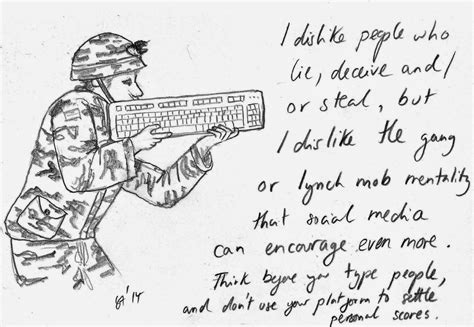 I dislike people who
lie, deceive and/
or steal, but
I dislike the gang
or lynch mob mentality
that social media
can encourage even more.
Think before you type people,
and don't use your platform to settle
personal scores.
'14